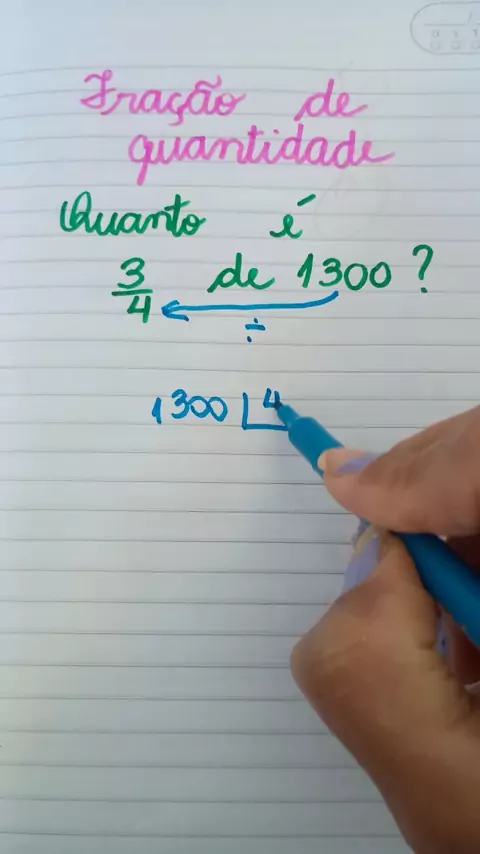 Fração de
quantidade
Quanto é
3/4 de 1300?
÷
1300 | 4